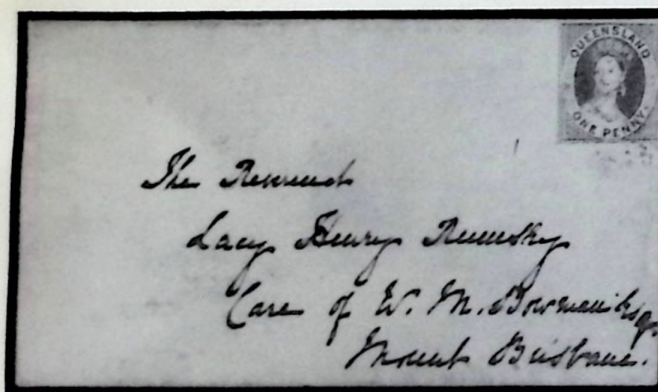 QUEENSLAND
ONE PENNY.
The Reverend
Lacy Henry Rumsey
Care of W. M. Bowman Esqr
Mount Brisbane.